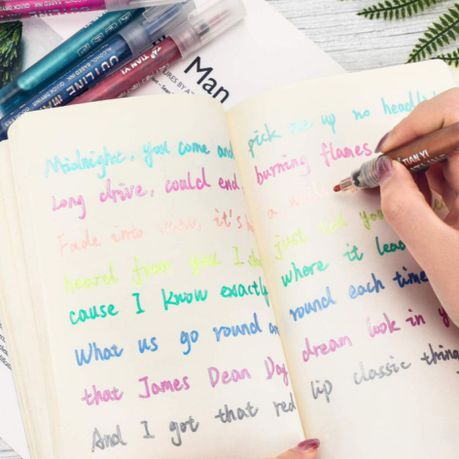 OUTLINE
TIAN YI
Man
Midnight, you come and
pick me up no headli
Long drive, could end
burning flames
Fade into view, it's
a w
heard from you I
just tell you
cause I know exactly
where it lea
What us go round an
round each time
that James Dean Day
dream look in y
And I got that red
lip classic thing
TIAN YI